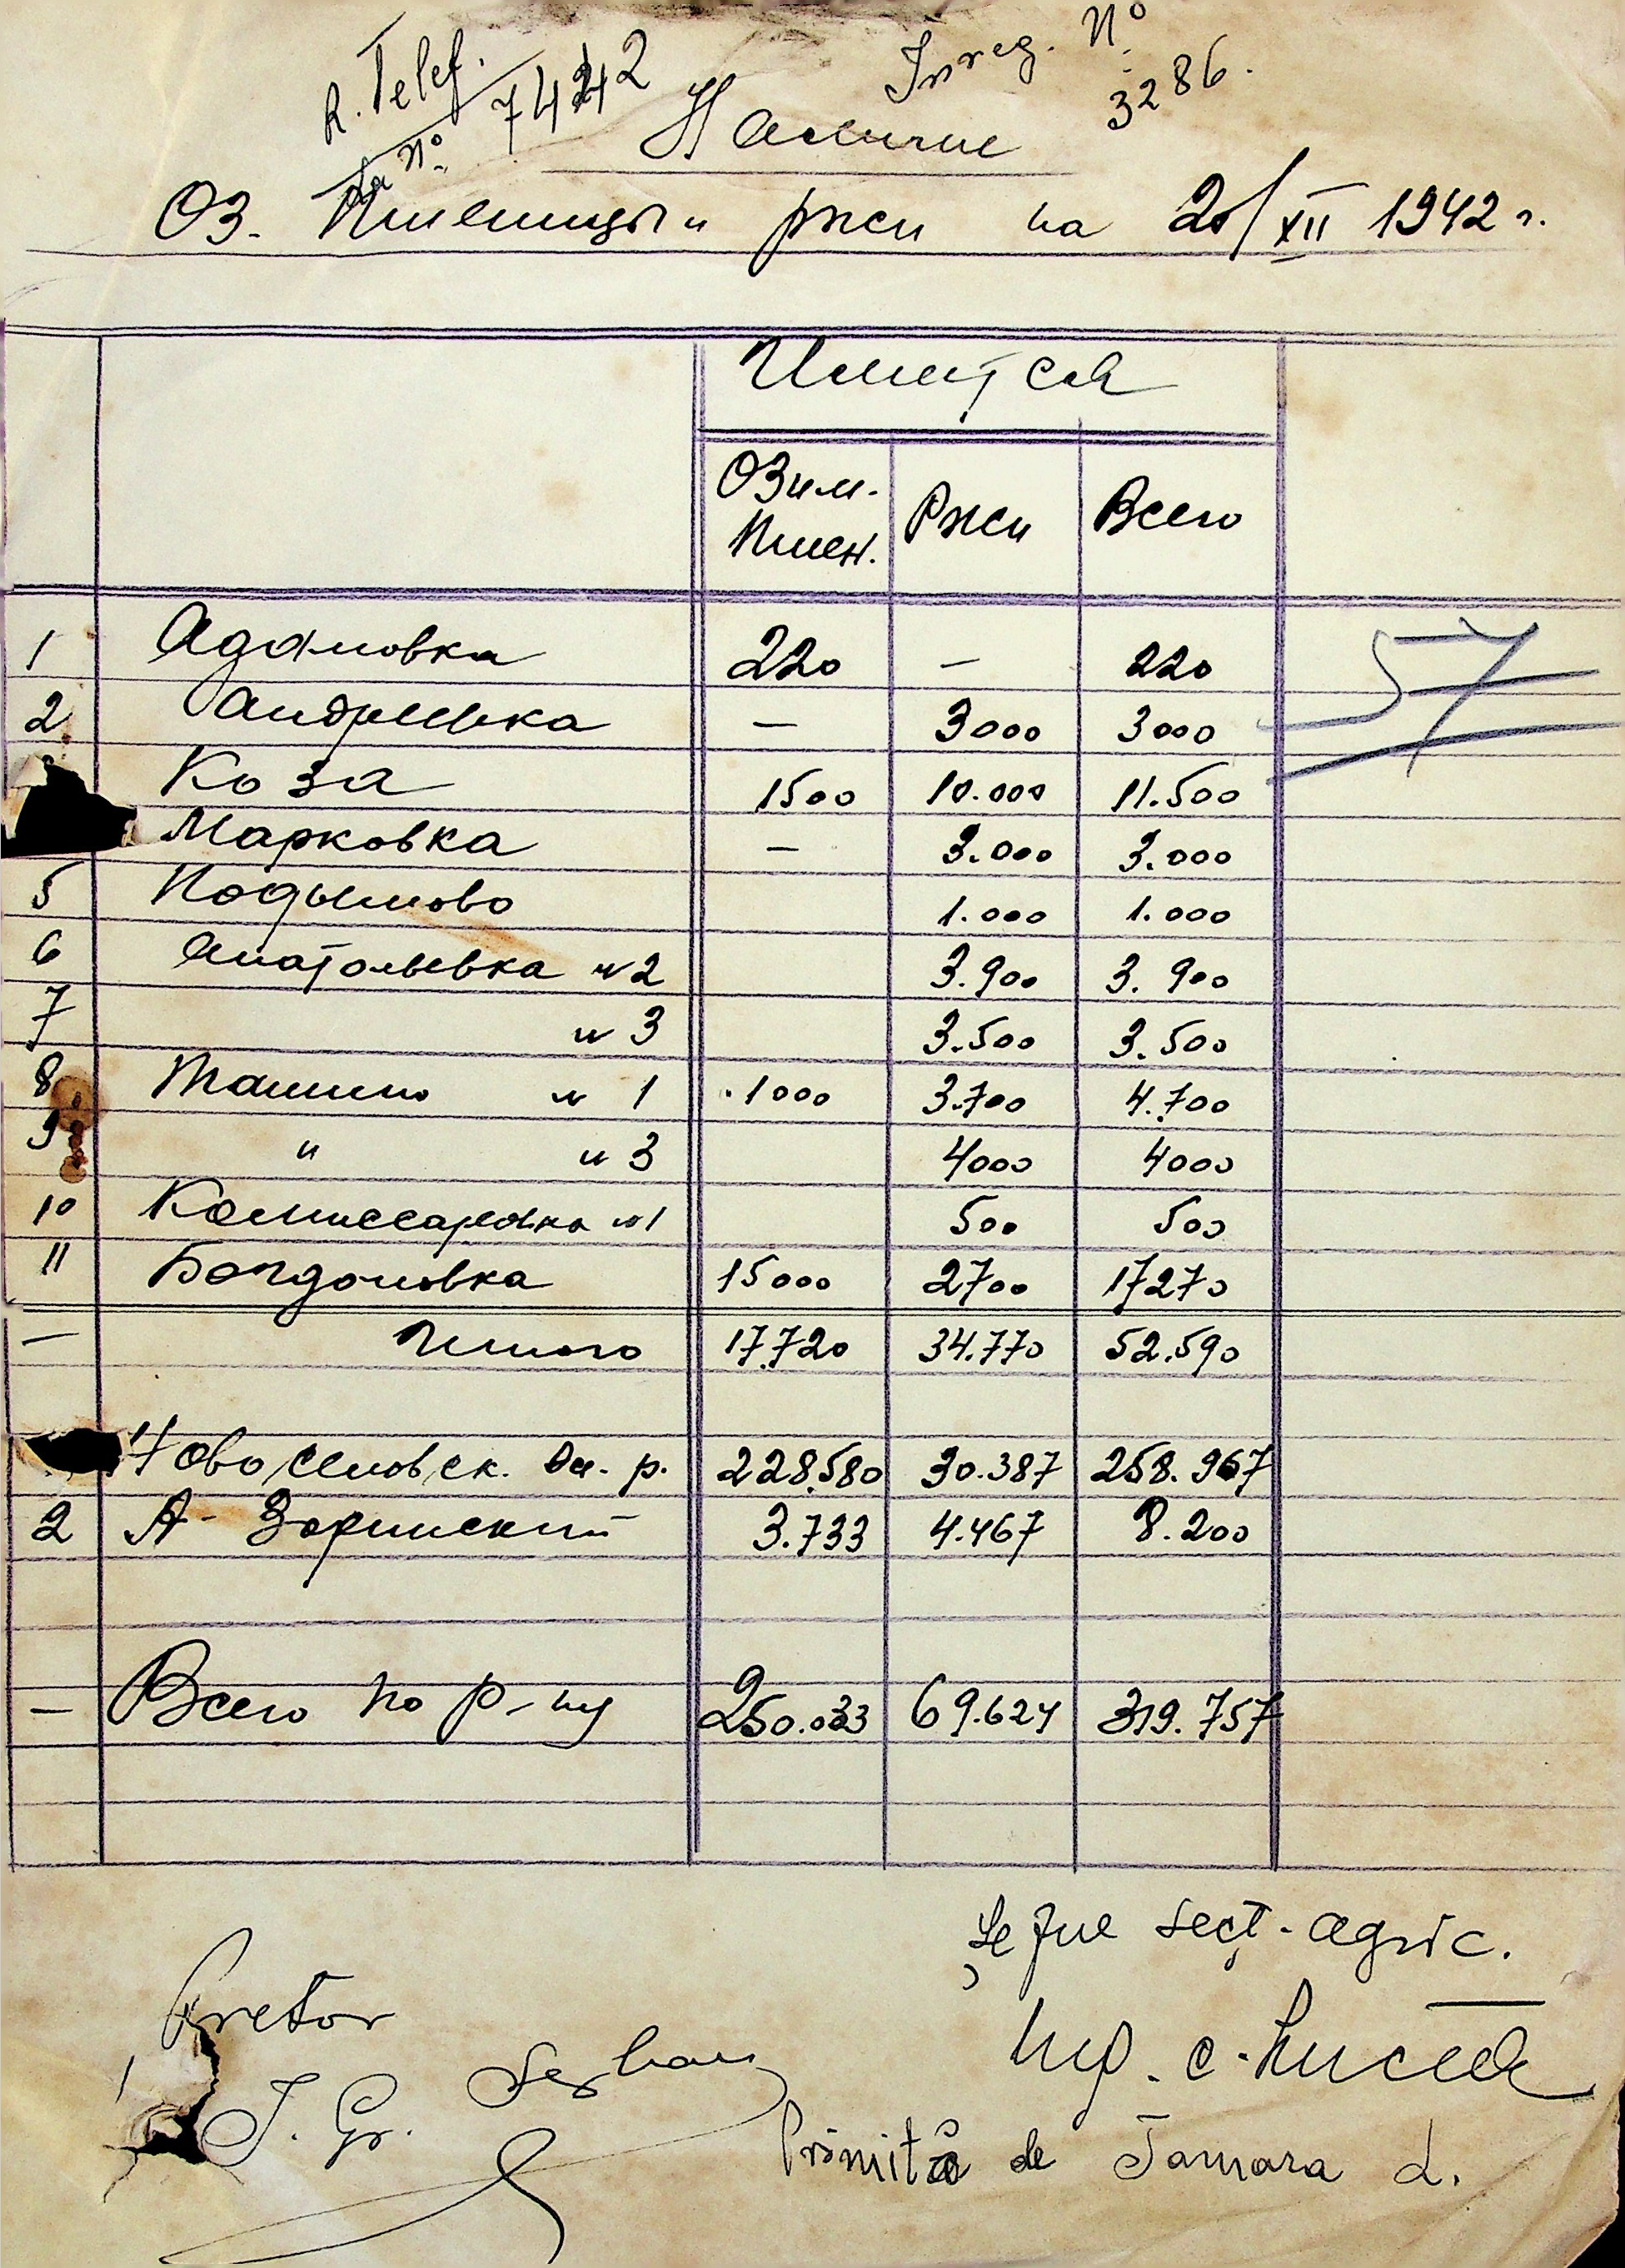 R. Telef. Inreg. Nº
La Nº 7442 3286.
Наличие
Оз. Пшеницы и ржи на 20/XII 1942 г.
Имеется
Озим. Пшен. Ржи Всего
1 Адамовка 220 — 220
57
2 Андреевка — 3000 3000
Коза 1500 10.000 11.500
Марковка — 3.000 3.000
5 Подымово 1.000 1.000
6 Анатольевка н2 3.900 3.900
7 н 3 3.500 3.500
8 Ташино н 1 1000 3.700 4.700
9 " н 3 4000 4000
10 Комиссаровка н1 500 500
11 Богдановка 15000 2700 17270
— Итого 17.720 34.770 52.590
Новоселовск. От. р. 228.580 30.387 258.967
2 А- Зоринский 3.733 4.467 8.200
— Всего по р-ну 250.033 69.624 319.757
Șeful secț. agric.
Pretor
Ing. C.
I. Gr. Șerban
Primită de Tamara L.